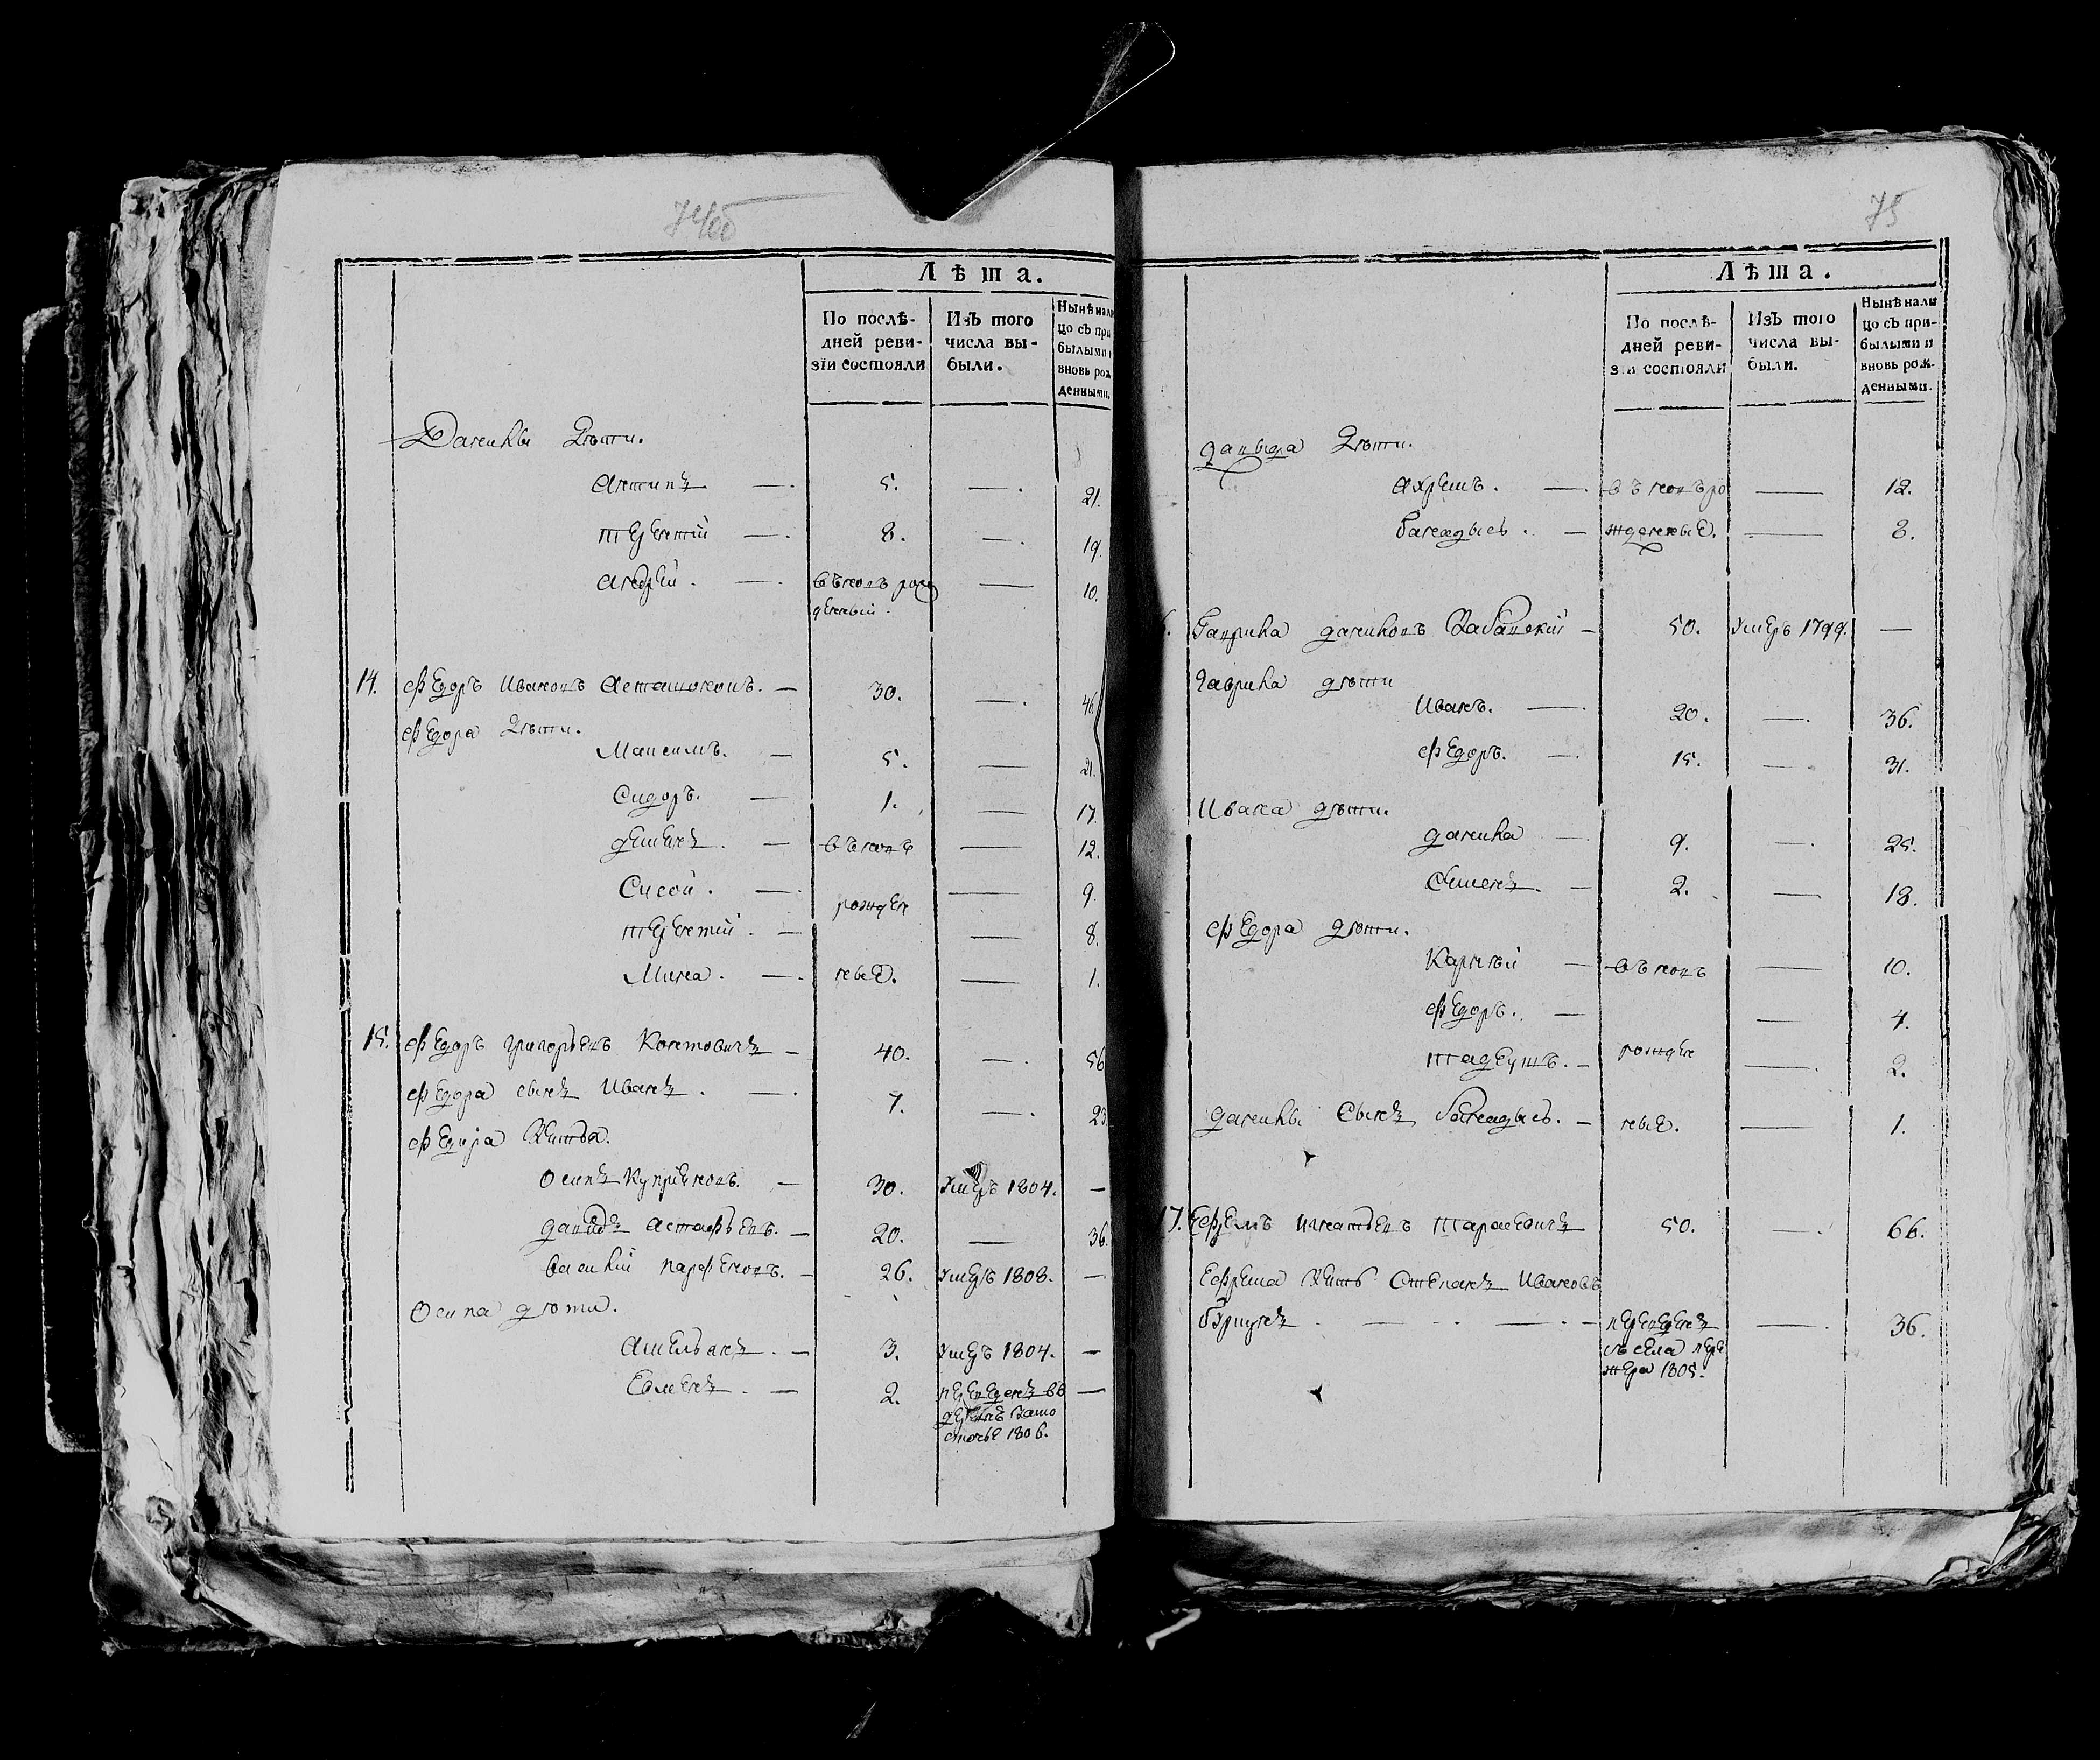 74об
Лѣта.
По послѣ-
дней реви-
зіи состояли
Изъ того
числа вы-
были.
Нынѣ нали
цо съ при
былыми и
вновь рож
денными.
Данилы дѣти.
Антипъ — 5. — 21.
Терентій — 8. — 19.
Андрей. — вѣновь рож — 10.
денный.
14. Федоръ Ивановъ — 30. — 46
Федора дѣти.
Максимъ. — 5. — 21.
Сидоръ. — 1. — 17.
Демьянъ. — вѣновь — 12.
Сисой. — рожден — 9.
Терентій. — 8.
Мина. — ные. — 1.
15. Федоръ Григорьевъ — 40. — 56
Федора сынъ Иванъ. — 7. — 23.
Федора зятья.
Осипъ Купріяновъ. — 30. умеръ 1804. —
Давидъ Астафьевъ. — 20. — 36.
Василій Парфеновъ. — 26. умеръ 1808. —
Осипа дѣти.
Амельянъ. — 3. умеръ 1804. —
2. переведенъ въ —
1806.
75
Лѣта.
По послѣ-
дней реви-
зіи состояли
Изъ того
числа вы-
были.
Нынѣ нали
цо съ при-
былыми и
вновь рож-
денными.
Давыда дѣти.
Ахремъ. — вѣновь ро — 12.
— жденные. — 8.
Гаврила Даниловъ — 50. умеръ 1799. —
Гаврила дѣти
Иванъ. — 20. — 36.
Федоръ. — 15. — 31.
Ивана дѣти.
Данила — 9. — 25.
Семенъ. — 2. — 18.
Федора дѣти.
Карнѣй — вѣновь — 10.
Федоръ. — 4.
Тадеушъ. — рожден — 2.
Данилы сынъ — ные. — 1.
17. Ефремъ Игнатьевъ Тарасевичъ 50. — 66.
Ефрема зять Степанъ Ивановъ
переведенъ — 36.
съ села
1805.